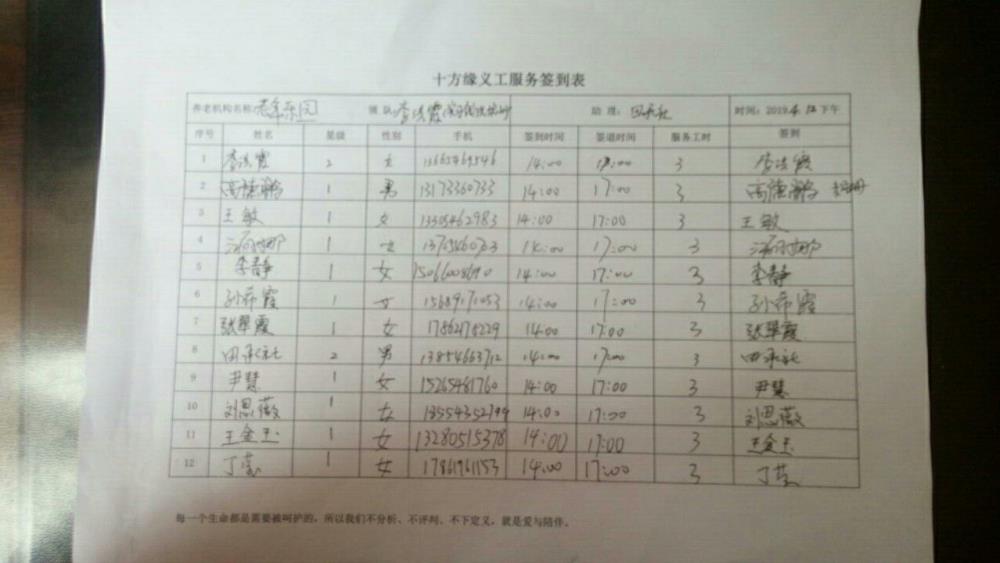 十方缘义工服务签到表
养老机构名称: 老年乐园 领队: 李洪霞 助理: 田承社 时间: 2019.4.12下午
序号 姓名 星级 性别 手机 签到时间 签退时间 服务工时 签到
1 李洪霞 2 女 13665469546 14:00 17:00 3 李洪霞
2 高德鹏 1 男 13173360733 14:00 17:00 3 高德鹏
3 王敏 1 女 13305462983 14:00 17:00 3 王敏
4 1 女 14:00 17:00 3
5 李静 1 女 15066008690 14:00 17:00 3 李静
6 孙希霞 1 女 15689171053 14:00 17:00 3 孙希霞
7 张翠霞 1 女 17862178229 14:00 17:00 3 张翠霞
8 田承社 2 男 13854663712 14:00 17:00 3 田承社
9 尹慧 1 女 15265481760 14:00 17:00 3 尹慧
10 刘思薇 1 女 14:00 17:00 3 刘思薇
11 王金玉 1 女 13280515378 14:00 17:00 3 王金玉
12 丁莹 1 女 17861961153 14:00 17:00 3 丁莹
每一个生命都是需要被呵护的，所以我们不分析、不评判、不下定义，就是爱与陪伴。